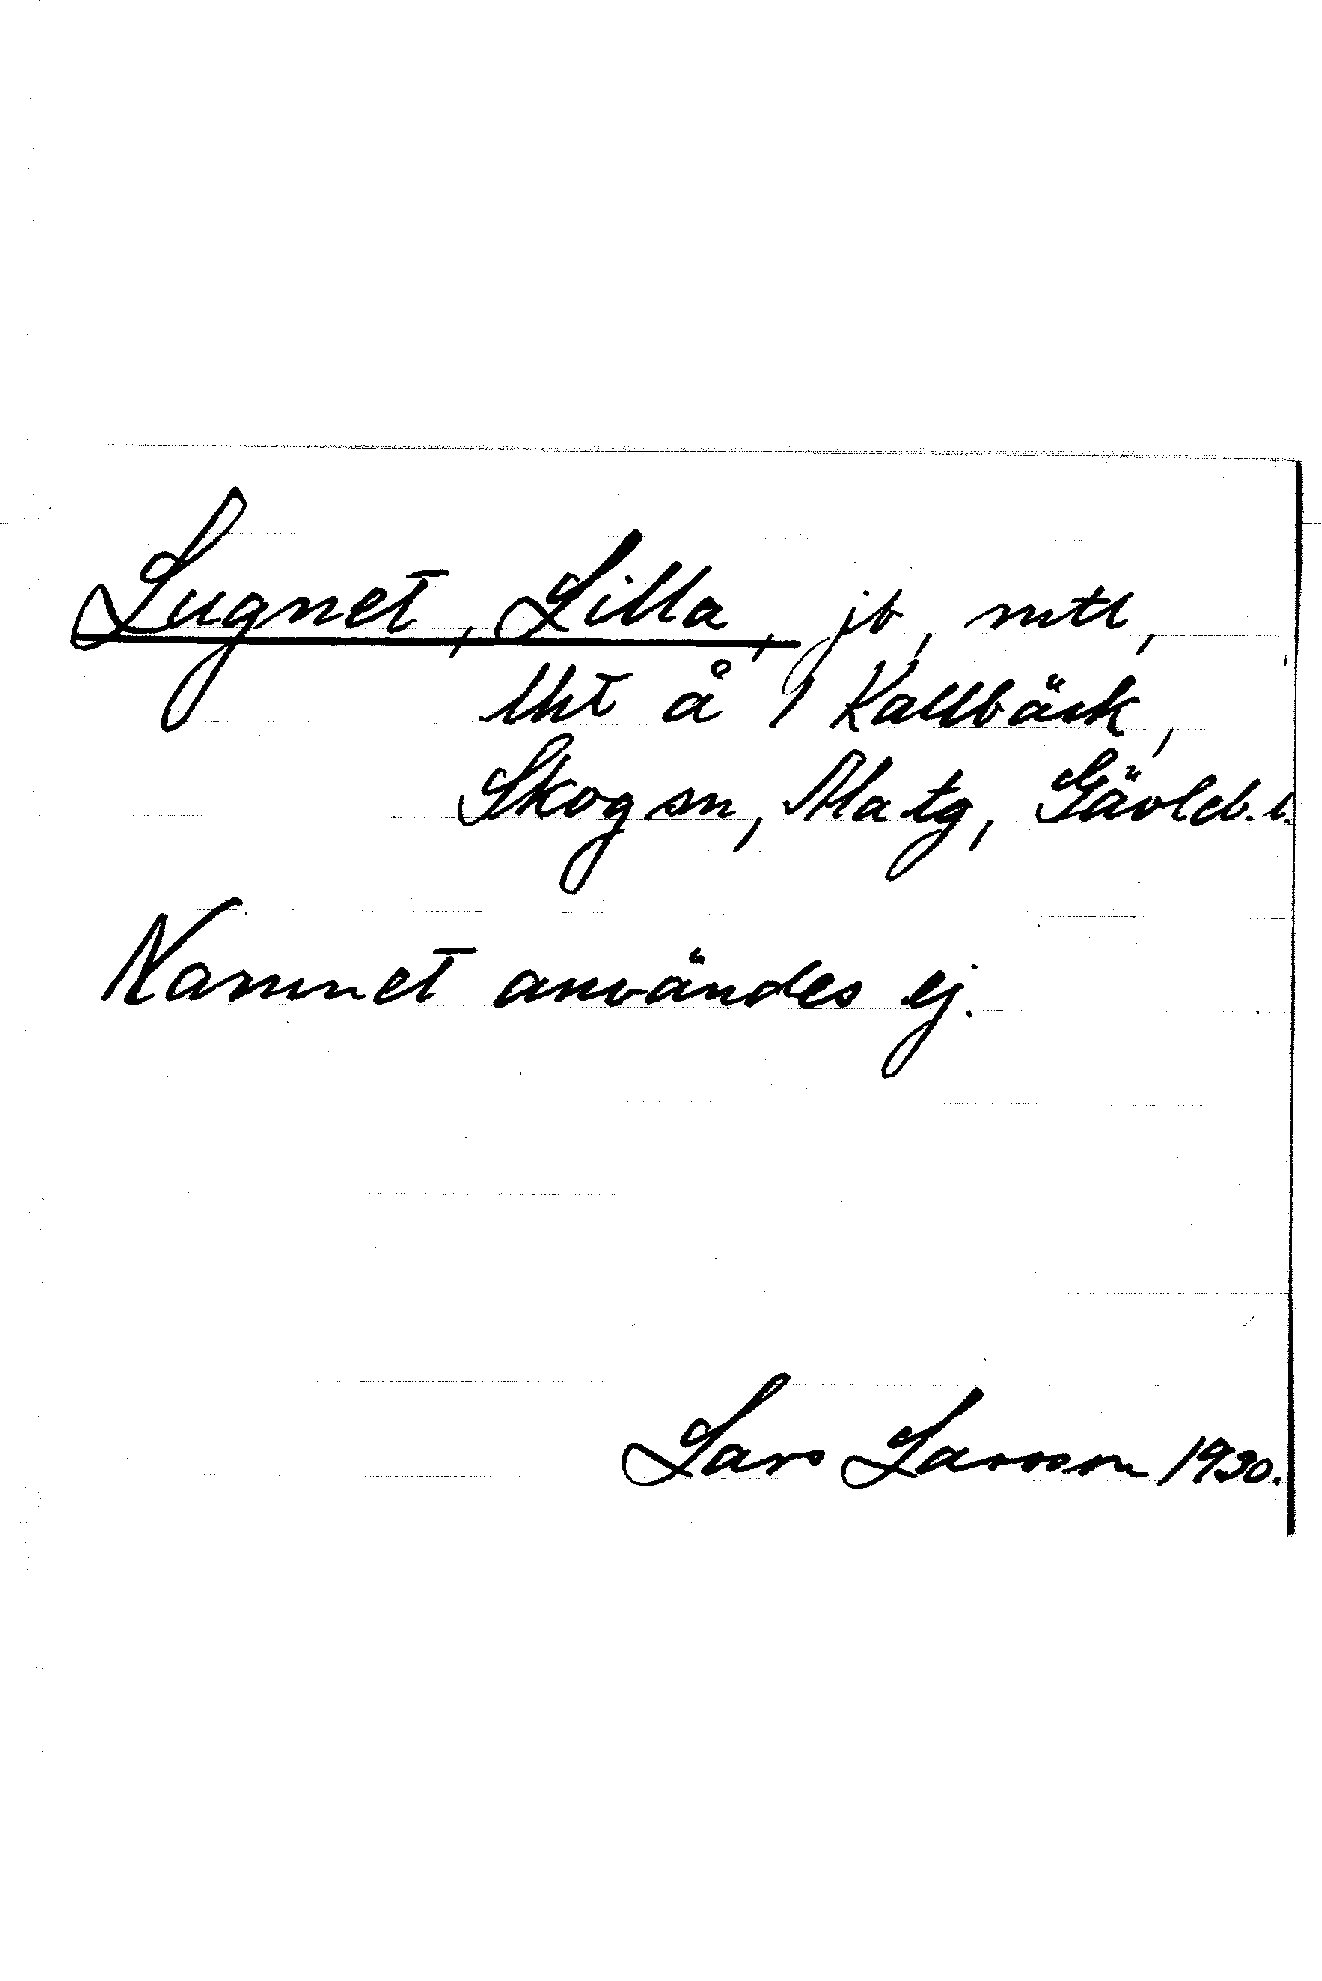 Lugnet, Lilla, jb, mtl,
lht å 1 Kallbäck,
Skog sn, Ala tg, Gävleb. l.
Namnet användes ej.
Lars Larsson 1930.